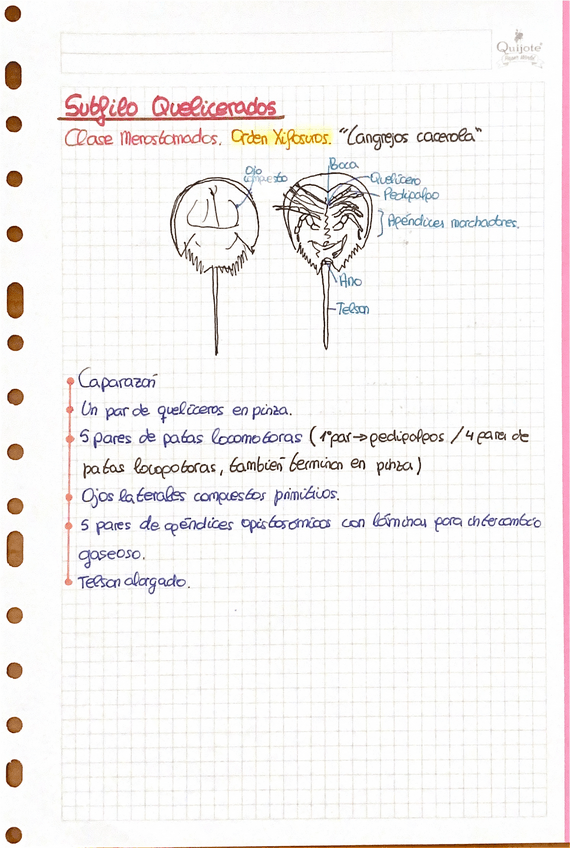 Quijote
Subfilo Quelicerados
Clase Merostomados. Orden Xifosuros. "Cangrejos cacerola"
Ojo
compuesto
Boca
Quelícero
Pedipalpo
Apéndices marchadores.
Ano
Telson
Caparazón
Un par de quelíceros en pinza.
5 pares de patas locomotoras (1er par → pedipalpos / 4 pares de
patas locomotoras, también terminan en pinza)
Ojos laterales compuestos primitivos.
5 pares de apéndices opistosómicos con láminas para intercambio
gaseoso.
Telson alargado.